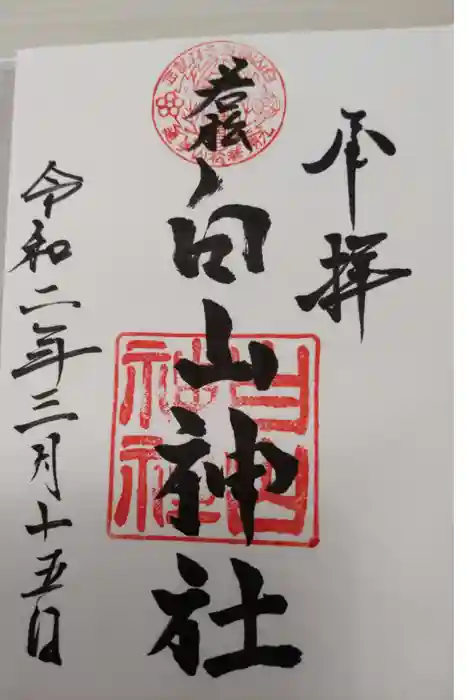 奉拝
若松
白山神社
白山
神社
令和二年三月十五日